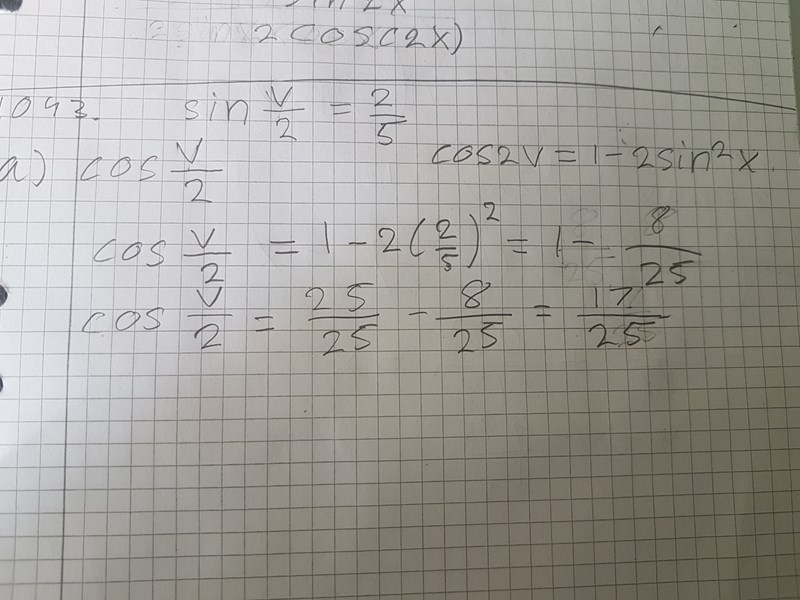 sin 2x
2 cos(2x)
1093. sin v/2 = 2/5
a) cos v/2 cos2v = 1 - 2sin²x.
cos v/2 = 1 - 2(2/5)² = 1 - 8/25
cos v/2 = 25/25 - 8/25 = 17/25